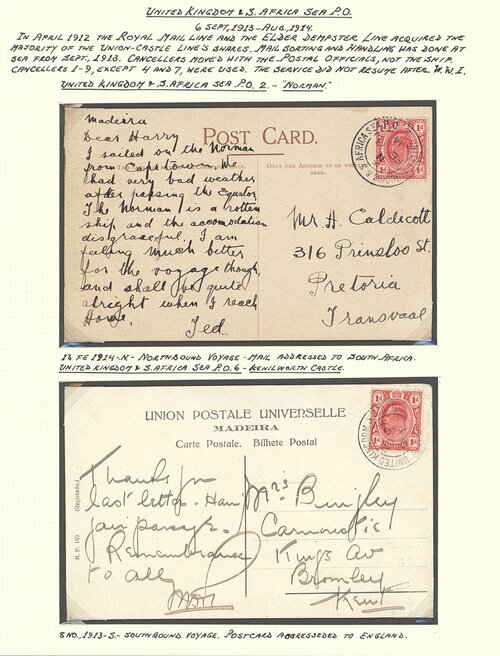 UNITED KINGDOM & S. AFRICA SEA P.O.
6 SEPT, 1913 - AUG, 1914.
IN APRIL 1912 THE ROYAL MAIL LINE AND THE ELDER DEMPSTER LINE ACQUIRED THE
MAJORITY OF THE UNION-CASTLE LINE'S SHARES. MAIL SORTING AND HANDLING WAS DONE AT
SEA FROM SEPT, 1913. CANCELLERS MOVED WITH THE POSTAL OFFICIALS, NOT THE SHIP.
CANCELLERS 1-9, EXCEPT 4 AND 7, WERE USED. THE SERVICE DID NOT RESUME AFTER W.W.I.
UNITED KINGDOM & S. AFRICA SEA P.O. 2. - "NORMAN."
Madeira
Dear Harry
POST CARD.
I sailed on the Norman
from Capetown. We
had very bad weather
after passing the Equator
The Norman is a rotten
ship and the accomodation
disgraceful. I am
feeling much better
for the voyage though,
and shall be quite
alright when I reach
Home.
Ted.
ONLY THE ADDRESS TO BE
HERE.
& S. AFRICA SEA P.O.
Mr H. Caldicott
316 Prinsloo St.
Pretoria
Transvaal
13 FE 1914-N.- NORTHBOUND VOYAGE - MAIL ADDRESSED TO SOUTH AFRICA.
UNITED KINGDOM & S. AFRICA SEA P.O. 6 - KENILWORTH CASTLE.
UNION POSTALE UNIVERSELLE
MADEIRA
Carte Postale. Bilhete Postal
UNITED KINGDOM
(Registado.)
B. P. (60)
Thanks for
last letter.
Remembrance
to all
Mrs Bingley
Carnoustie
Kings Av
Bromley
Kent
8 NO., 1913-S.- SOUTHBOUND VOYAGE. POSTCARD ADDRESSEDED TO ENGLAND.